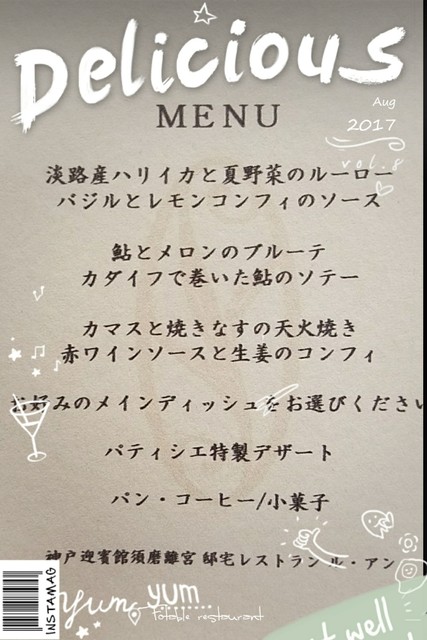 Delicious
MENU
Aug
2017
vol.8
淡路産ハリイカと夏野菜のルーロー
バジルとレモンコンフィのソース
鮎とメロンのブルーテ
カダイフで巻いた鮎のソテー
カマスと焼きなすの天火焼き
赤ワインソースと生姜のコンフィ
お好みのメインディッシュをお選びください
パティシエ特製デザート
パン・コーヒー/小菓子
神戸迎賓館須磨離宮 邸宅レストラン ル・アン
INSTAMAG
yum, yum
Potable restaurant
t well